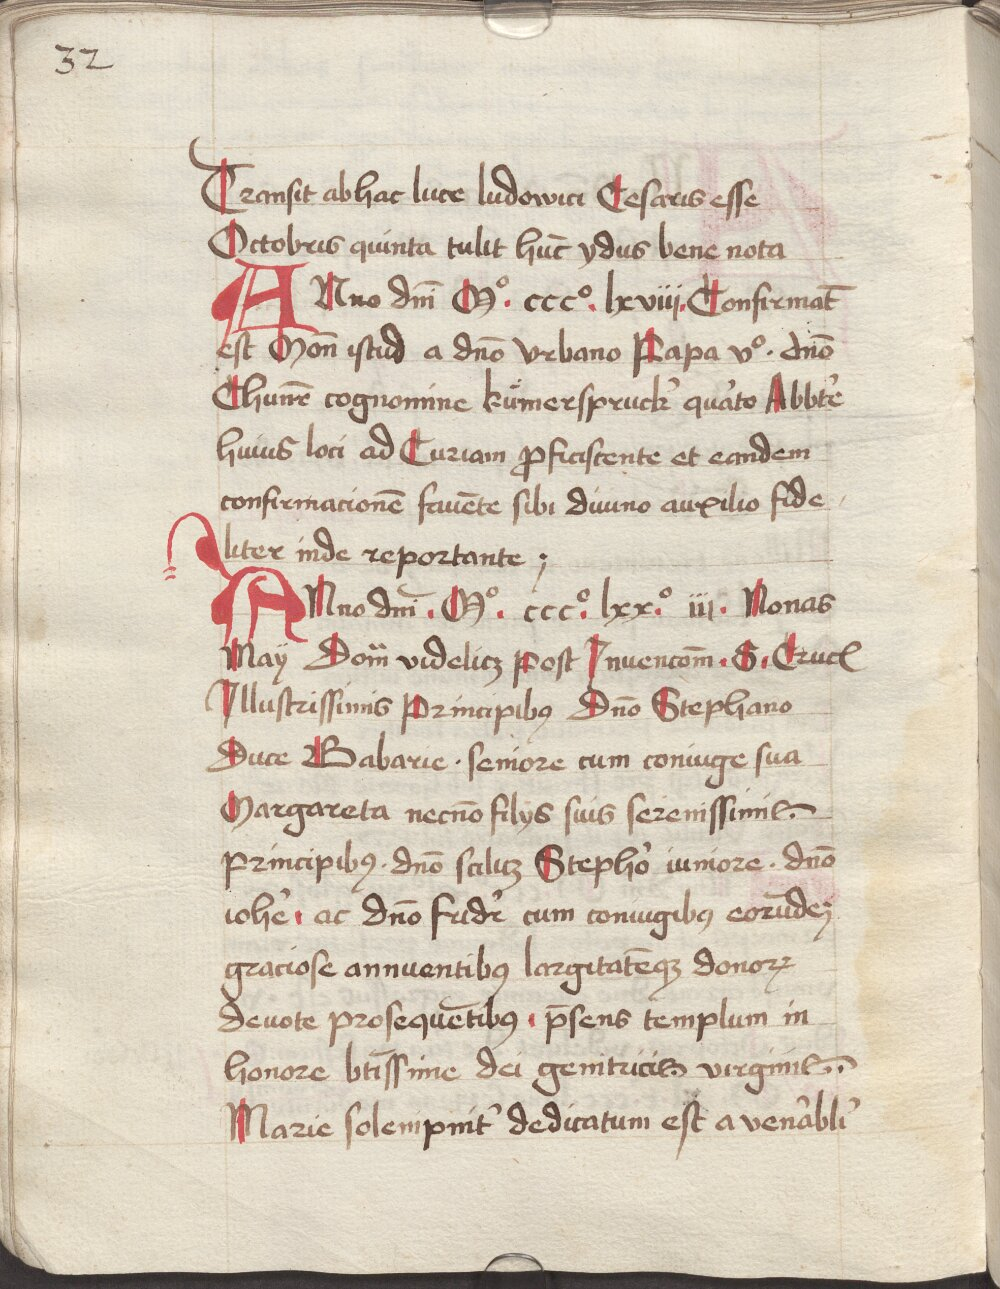 32
Transit ab hac luce ludowici Cesaris esse
Octobris quinta tulit hūc ydus bene nota
ANno dn̄i Mº. cccº. lxviij. Confirmat̄
est Mon̄ istud a dn̄o Vrbano Papa vº. dn̄o
Chunr̄ cognomine kům̄erspruck' quͣrto Abbt̄e
huius loci ad Curiam ꝓficiscente et eandem
confirmacionē fauēte sibi diuino auxilio fide
liter inde reportante ;
ANno dn̄i . Mº. cccº. lxx.º iij. Nonas
Maÿ Dom̄ videlicꝫ post Inuencōm . S. Crucꝭ
Illustrissimis Principibꝰ Dn̄o Stephano
Duce Babarie . seniore cum coniuge sua
Margareta necnō filÿs suis serenissimis
principibꝰ. dn̄o scilicꝫ Stephō iuniore . dn̄o
iohē . ac dn̄o fridr̄ cum coniugibꝰ eorūdeꝫ
graciose annuentibꝰ largitatēqꝫ donoꝝ
deuote prosequētibꝰ . p̄sens templum in
honore bt̄issime dei genitricis virginis
Marie solempnit̄ dedicatum est a ven̄abli'